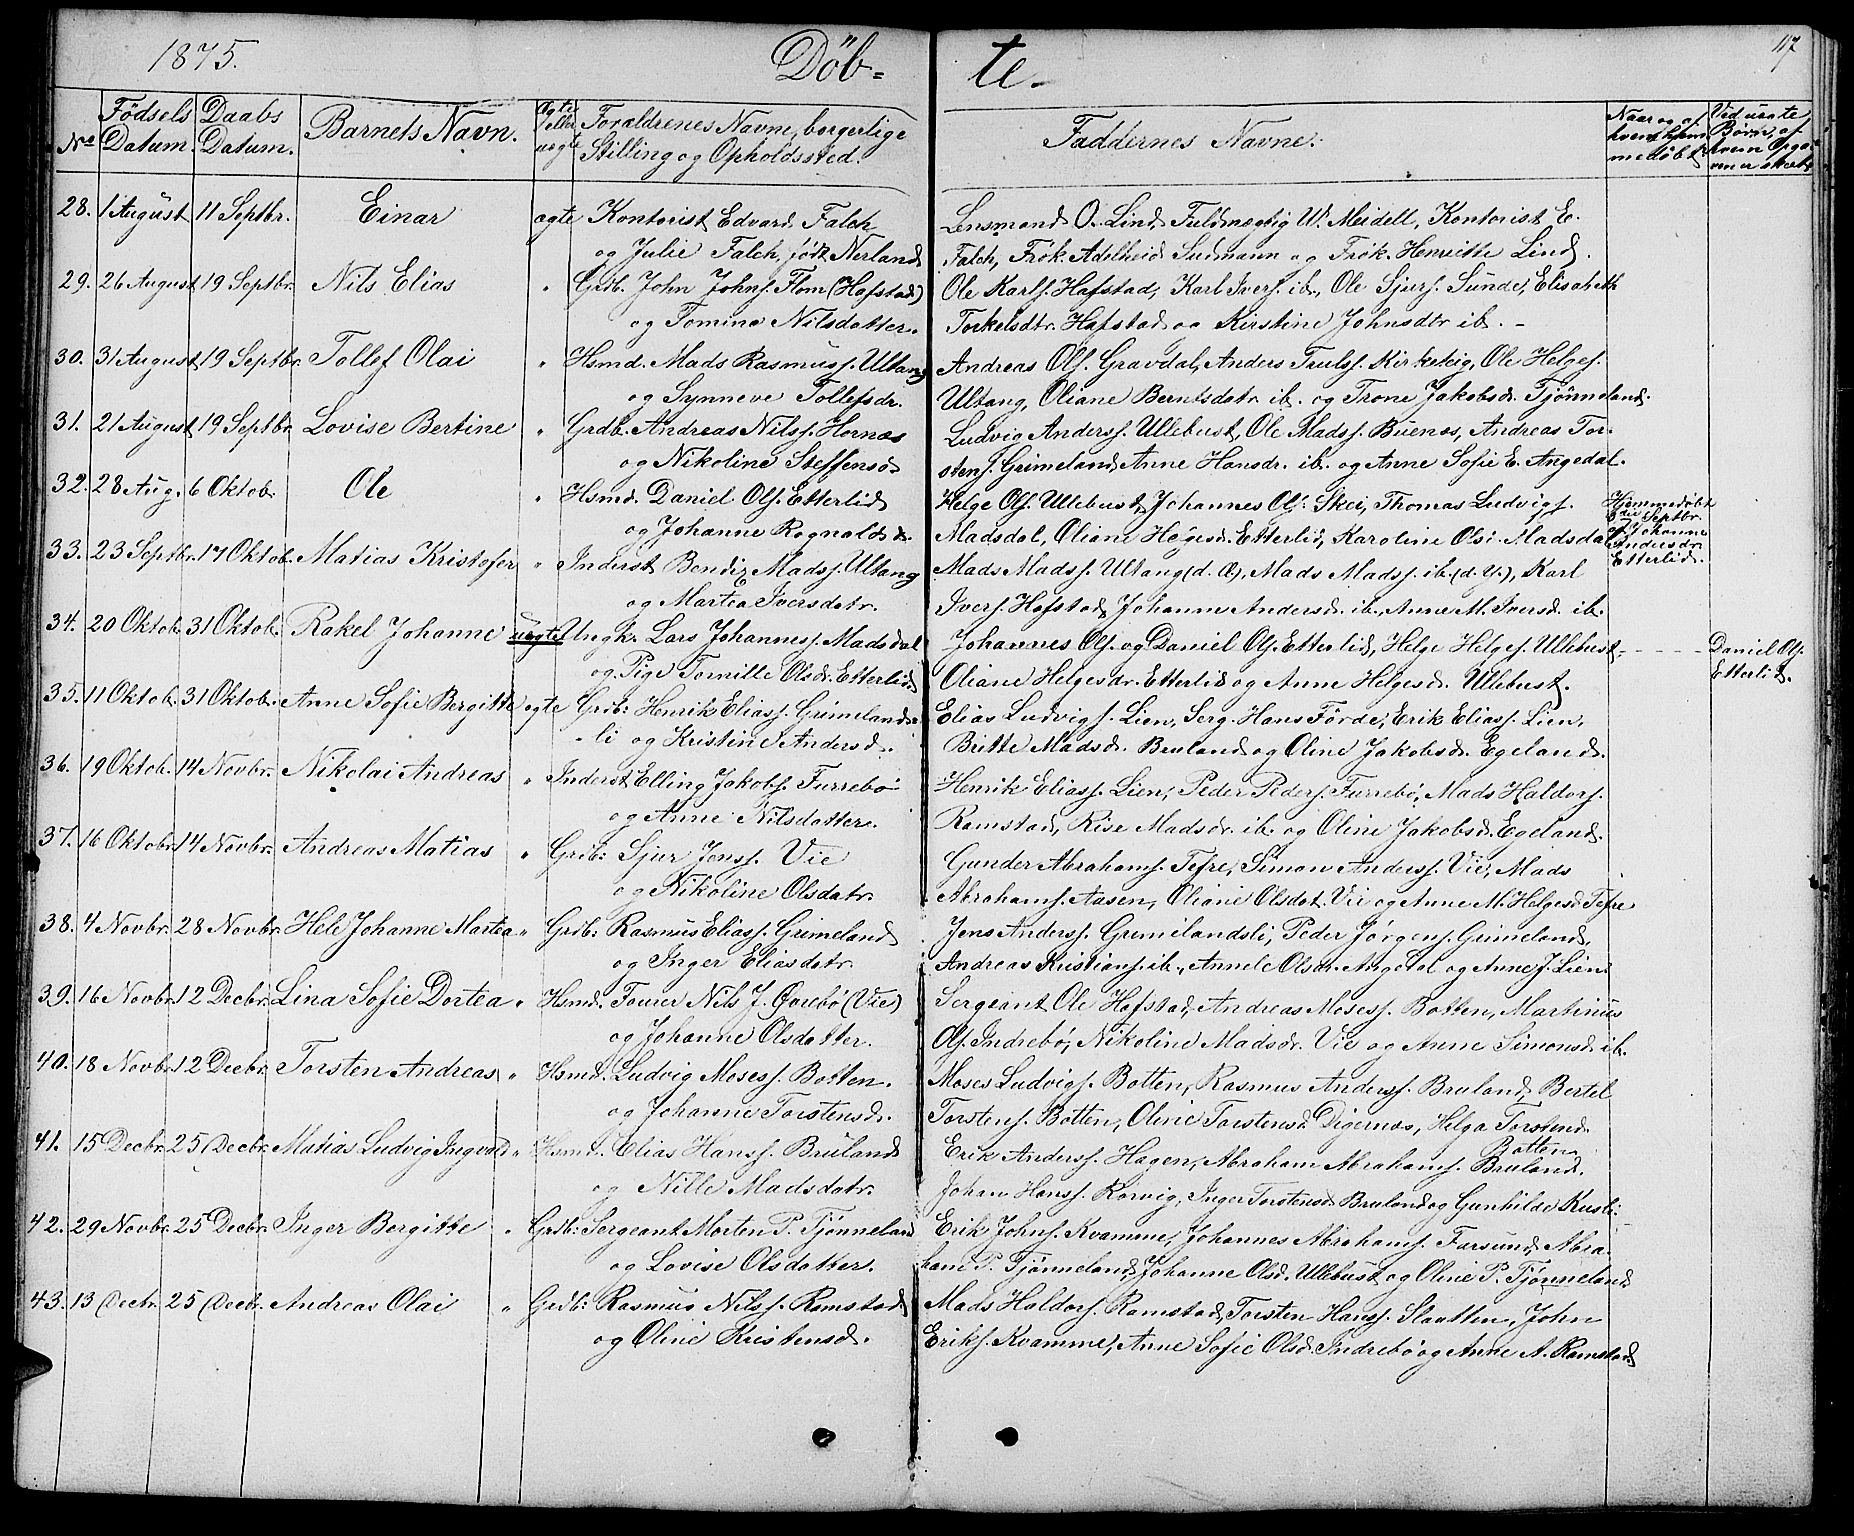 1875. Döb= te. 117
No Födsels Datum. Daabs Datum. Barnets Navn. Ægte eller uægte Forældrenes Navne, borgerlige Stilling og Opholdssted. Faddernes Navne. Naar og af hvem hjemmedøbt Ved uægte Børn, af hvem Opgaven er skeet
28. 1 August 11 Septbr. Einar ægte Kontorist Edvard Falch Lensmand O. Lind, Fuldmægtig W. Meidell, Kontorist E.
og Julie Falch, født Nerland Falch, Frøk. Adelheid Sudmann og Frøk. Henriette Lind.
29. 26 August 19 Septbr. Nils Elias " Grdb. John Johns. Flom (Hafstad) Ole Karls. Hafstad, Karl Ivers. ib., Ole Sjurs. Sunde, Elisabeth
og Tomine Nilsdatter. Torkelsdtr. Hafstad og Kirstine Johnsdtr ib. -
30. 31 August 19 Septbr. Tollef Olai " Hsmd. Mads Rasmuss. Ultang Andreas Ols. Gravdal, Anders Trulss. Kirketeig, Ole Helges.
og Synneve Tollefsdr. Ultang, Oliane Berntsdatr ib. og Trone Jakobsdr. Tjønneland.
31. 21 August 19 Septbr. Lovise Bertine " Grdb. Andreas Nilss. Hornæs Ludvig Anderss. Ullebust, Ole Madss. Buenæs, Andreas Tor-
og Nikoline Steffensd. stens. Grimeland, Anne Hansdr. ib. og Anne Sofie E. Angedal.
32. 28 Aug. 6 Oktob. Ole " Hsmd. Daniel Ols. Etterlid Helge Ols. Ullebust, Johannes Ols. Skei, Thomas Ludvigs. Hjemmedøbt
og Johanne Rognaldsd. Madsdal, Oliane Helgesd. Etterlid, Karoline Olsd. Madsdal 3die Septbr. af Johanne Andersdr. Etterlid.
33. 23 Septbr. 17 Oktob. Matias Kristofer " Inderst Bendix Madss. Ultang Mads Madss. Ultang (d. Æ), Mads Madss. ib. (d. Y.), Karl
og Martea Iversdatr. Ivers. Hafstad, Johanne Andersd. ib., Anne M. Iversd. ib.
34. 20 Oktob. 31 Oktob. Rakel Johanne uægte Ungkr. Lars Johanness. Madsdal Johannes Ols. og Daniel Ols. Etterlid, Helge Helges. Ullebust. Daniel Ols.
og Pige Tomille Olsdr. Etterlid Oliane Helgesdr. Etterlid og Anne Helgesd. Ullebust. Etterlid.
35. 11 Oktob. 31 Oktob. Anne Sofie Bergitte ægte Grdb: Henrik Eliass. Grimelands- Elias Ludvigs. Lien, Serg. Hans Førde, Erik Eliass. Lien,
li og Kristine Andersd. Britte Madsdr. Bruland og Oline Jakobsdr. Egeland.
36. 19 Oktob. 14 Novbr. Nikolai Andreas " Inderst Elling Jakobs. Furrebø Henrik Eliass. Lien, Peder Peders. Furrebø, Mads Haldors.
og Anne Nilsdatter. Ramstad, Rise Madsdr. ib. og Oline Jakobsd. Egeland.
37. 16 Oktobr. 14 Novbr. Andreas Matias " Grdb: Sjur Jenss. Vie Gunder Abrahams. Tefre, Simon Anderss. Vie, Mads
og Nikoline Olsdatr. Abrahams. Aasen, Oliane Olsdat. Vie og Anne M. Helgesd Tefre
38. 4 Novbr. 28 Novbr. Hele Johanne Martea " Grdb: Rasmus Eliass. Grimeland Jens Anderss. Grimelandsli, Peder Jørgens. Grimeland,
og Inger Eliasdatr. Andreas Kristians. ib., Annele Olsdr. Angedal og Anne J. Lien.
39. 16 Novbr. 12 Decbr. Lina Sofie Dortea " Hsmd. Fourer Nils J. Øvrebø (Vie) Sergeant Ole Hafstad, Andreas Moses. Botten, Martinus
og Johanne Olsdatter. Ols. Indrebø, Nikoline Madsdr. Vie og Anne Simonsd. ib.
40. 18 Novbr. 12 Decbr. Torsten Andreas " Hsmd. Ludvig Moses. Botten. Moses Ludvigs. Botten, Rasmus Anderss. Bruland, Bertel
og Johanne Torstensd. Torstens. Botten, Oline Torstensd. Digernæs, Helga Torstensd. Botten.
41. 15 Decbr. 25 Decbr. Matias Ludvig Ingvald " Hsmd. Elias Hanss. Bruland Erik Anderss. Hagen, Abraham Abrahams. Bruland,
og Nille Madsdatr. Johan Hanss. Korvig, Inger Torstensd Bruland og Gunhilde Kusli.
42. 29 Novbr. 25 Decbr. Inger Bergitte " Grdb: Sergeant Morten P. Tjønneland Erik Johns. Kvamme, Johannes Abrahams. Farsund, Abra-
og Lovise Olsdatter. ham P. Tjønneland, Johanne Olsd. Ullebust og Oline P. Tjønneland
43. 13 Decbr. 25 Decbr. Andreas Olai " Grdb: Rasmus Nilss. Ramstad Mads Haldors. Ramstad, Torsten Hanss. Slaatten, John
og Oline Kristensd. Eriks. Kvamme, Anne Sofie Olsd. Indrebø og Anne A. Ramstad